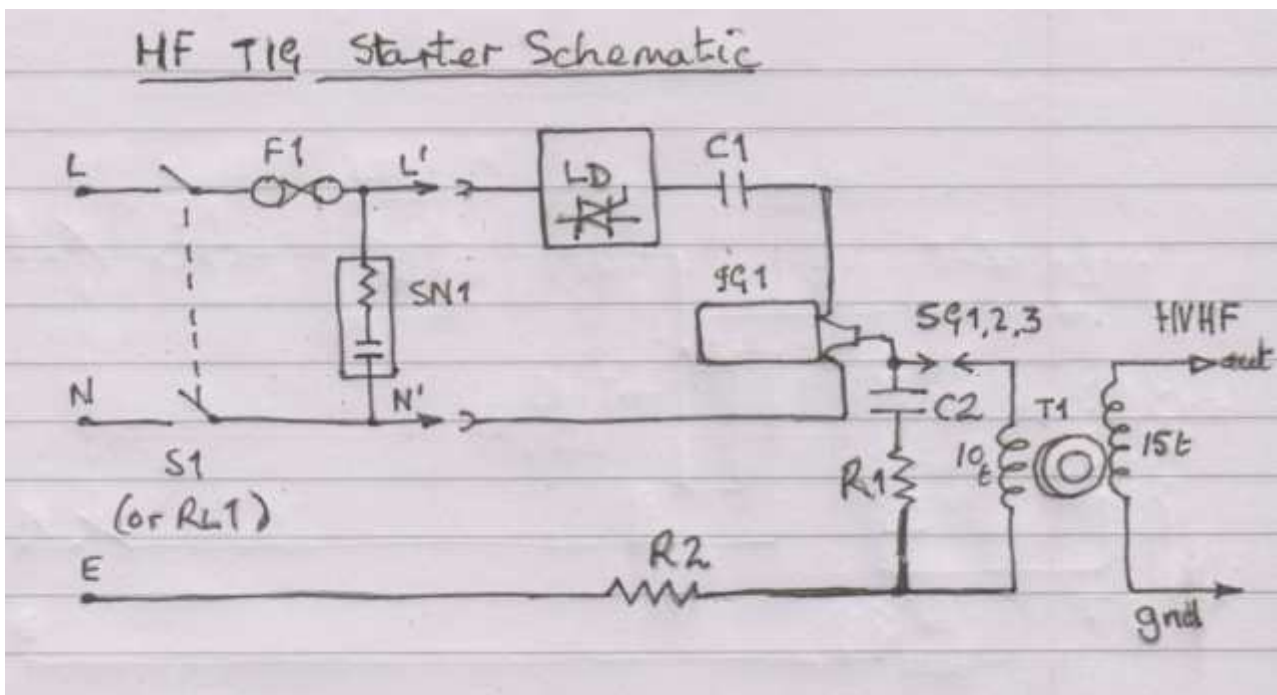 HF TIG Starter Schematic
L
F1
L'
LD
C1
SN1
IG1
SG1,2,3
HVHF
out
N
N'
C2
T1
S1
(or RL1)
R1
10t
15t
E
R2
gnd